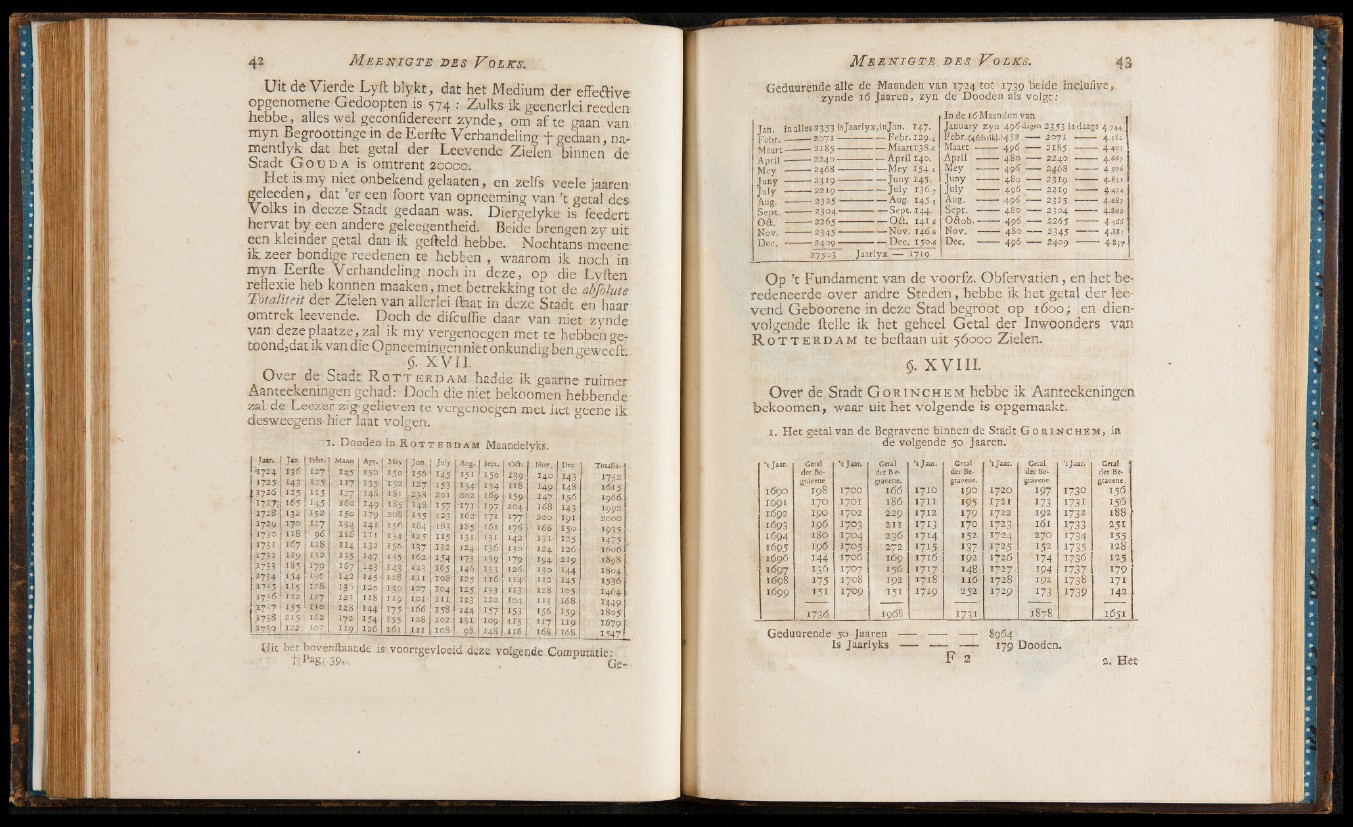 42 MEENIGTE DES VOLKS.
Uit de Vierde Lyſt blykt, dat het Medium der effective
opgenomene Gedoopten is 574 : Zulks ik geenerlei reeden
hebbe, alles wel geconſidereert zynde, om af te gaan van
myn Begrootinge in de Eerſte Verhandeling † gedaan, na-
mentlyk dat het getal der Leevende Zielen binnen de
Stadt GOUDA is omtrent 20000.
Het is my niet onbekend gelaaten, en zelfs veele jaaren
geleeden, dat 'er een ſoort van opneeming van 't getal des
Volks in deeze Stadt gedaan was. Diergelyke is ſeedert
hervat by een andere geleegentheid. Beide brengen zy uit
een kleinder getal dan ik geſteld hebbe. Nochtans meene
ik zeer bondige reedenen te hebben , waarom ik noch in
myn Eerſte Verhandeling noch in deze, op die Lyſten
reflexie heb konnen maaken, met betrekking tot de abſolute
Totaliteit der Zielen van allerlei ſtaat in deze Stadt en haar
omtrek leevende. Doch de diſcuſſie daar van niet zynde
van deze plaatze, zal ik my vergenoegen met te hebben ge-
toond, dat ik van die Opneemingen niet onkundig ben geweeſt.
§. XVII.
Over de Stadt ROTTERDAM hadde ik gaarne ruimer
Aanteekeningen gehad: Doch die niet bekoomen hebbende
zal de Leezer zig gelieven te vergenoegen met het geene ik
desweegens hier laat volgen.
1. Dooden in ROTTERDAM Maandelyks.
Jaar. Jan. Febr. Maart Apr. Mey Jun. July Aug. Sept. Oct. Nov. Dec. Totalis.
1724 136 127 145 150 150 156 145 151 150 139 140 143 1732
1725 143 125 117 133 152 127 153 134 134 118 149 148 1615
1726 125 115 127 146 181 238 201 202 169 159 147 156 1966
1727 165 145 160 149 185 148 157 171 197 204 168 143 1992
1728 132 152 150 179 208 155 123 162 171 177 200 191 2000
1729 170 127 134 141 156 184 183 185 161 176 168 150 1935
1730 118 96 116 111 134 125 115 131 131 142 131 125 1475
1731 167 128 114 132 156 137 132 124 136 130 124 126 1606
1732 129 132 135 147 135 162 154 173 139 179 194 219 1898
1733 185 179 167 143 143 143 165 146 133 126 130 144 1804
1734 154 136 142 145 128 111 108 125 116 114 112 145 1536
1735 115 128 136 120 130 127 104 125 133 113 128 105 1464
1736 122 127 123 118 119 101 111 123 120 104 113 168 1449
1737 155 110 128 144 175 166 158 144 157 153 156 159 1805
1738 215 162 172 154 155 128 102 131 109 115 117 119 1679
1739 122 107 119 126 161 111 108 98 148 116 168 168 1547
Uit het bovenſtaande is voortgevloeid deze volgende Computatie:
† Pag. 39. Ge-
MEENIGTE DES VOLKS. 43
Geduurende alle de Maanden van 1724 tot 1739 beide incluſive,
zynde 16 Jaaren, zyn de Dooden als volgt:
Jan. in alles 2353 is Jaarlyx, in Jan. 147.
Febr. — 2071 — Febr. 129.4
Maart — 2185 — Maart 138.6
April — 2240 — April 140.
Mey — 2468 — Mey 154.2
Juny — 2319 — Juny 145.
July — 2219 — July 136.7
Aug. — 2325 — Aug. 145.3
Sept. — 2304 — Sept. 144.
Oct. — 2265 — Oct. 141.6
Nov. — 2345 — Nov. 146.6
Dec. — 2409 — Dec. 150.6
27503 Jaarlyx — 1719
In de 16 Maanden van
January zyn 496 dagen 2353 is daags 4.744
Febr. (4 ſchrikk.) 452 — 2071 — 4.582
Maart — 496 — 2185 — 4.405
April — 480 — 2240 — 4.667
Mey — 496 — 2468 — 4.976
Juny — 480 — 2319 — 4.831
July — 496 — 2219 — 4.474
Aug. — 496 — 2325 — 4.687
Sept. — 480 — 2304 — 4.800
Octob. — 496 — 2265 — 4.566
Nov. — 480 — 2345 — 4.885
Dec. — 496 — 2409 — 4.857
Op 't Fundament van de voorſz. Obſervatien, en het be-
redeneerde over andre Steden, hebbe ik het getal der lee-
vend Geboorene in deze Stad begroot op 1600; en dien-
volgende ſtelle ik het geheel Getal der Inwoonders van
ROTTERDAM te beſtaan uit 56000 Zielen.
§. XVIII.
Over de Stadt GORINCHEM hebbe ik Aanteekeningen
bekoomen, waar uit het volgende is opgemaakt.
1. Het getal van de Begravene binnen de Stadt GORINCHEM, in
de volgende 50 Jaaren.
't Jaar. Getal 't Jaar. Getal 't Jaar. Getal 't Jaar. Getal 't Jaar. Getal
der Be- der Be- der Be- der Be- der Be-
gravene. gravene. gravene. gravene. gravene.
1690 198 1700 166 1710 190 1720 197 1730 156
1691 170 1701 186 1711 195 1721 173 1731 156
1692 190 1702 229 1712 179 1722 192 1732 188
1693 196 1703 211 1713 170 1723 161 1733 251
1694 180 1704 236 1714 152 1724 270 1734 155
1695 196 1705 272 1715 137 1725 152 1735 128
1696 144 1706 169 1716 192 1726 174 1736 125
1697 136 1707 156 1717 148 1727 194 1737 179
1698 175 1708 192 1718 116 1728 192 1738 171
1699 151 1709 151 1719 252 1729 173 1739 142
1736 1968 1731 1878 1651
Geduurende 50 Jaaren — — — 8964
Is Jaarlyks — — — 179 Dooden.
F 2 2. Het